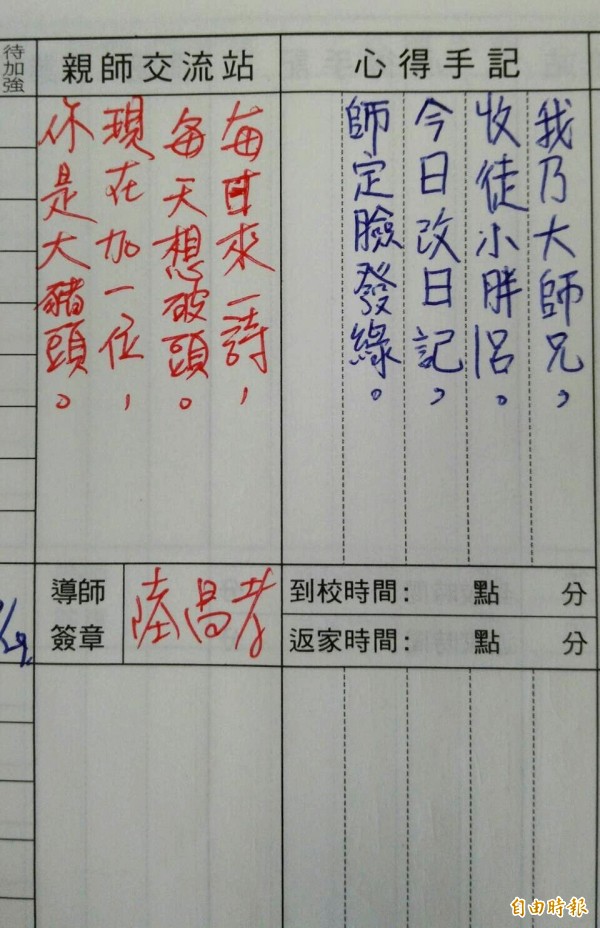 待加強
親師交流站
心得手記
我乃大師兄，
收徒小胖呂。
今日改日記，
師定臉發綠。
每日來一詩，
每天想破頭。
現在加一位，
你是大豬頭。
導師
簽章
到校時間： 點 分
返家時間： 點 分
自由時報